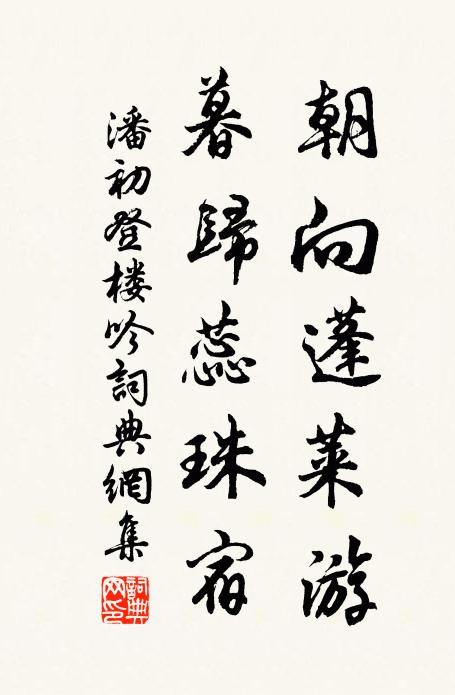 朝向蓬萊游
暮歸蕊珠宿
潘初登楼吟詞典網集
詞典网印